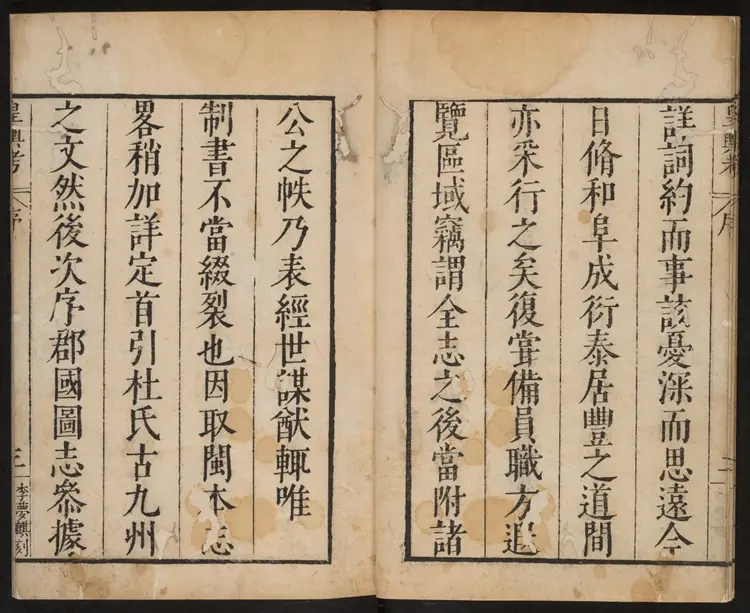 皇輿考 序 二
詳詞約而事該憂深而思遠今
日脩和阜成衍泰居豐之道間
亦采行之矣復甞備員職方遐
覽區域竊謂全志之後當附諸
公之帙乃表經世謀猷輒唯
制書不當綴裂也因取閩本志
畧稍加詳定首引杜氏古九州
之文然後次序郡國圖志叅據
皇輿考 序 三 李夢麒刻